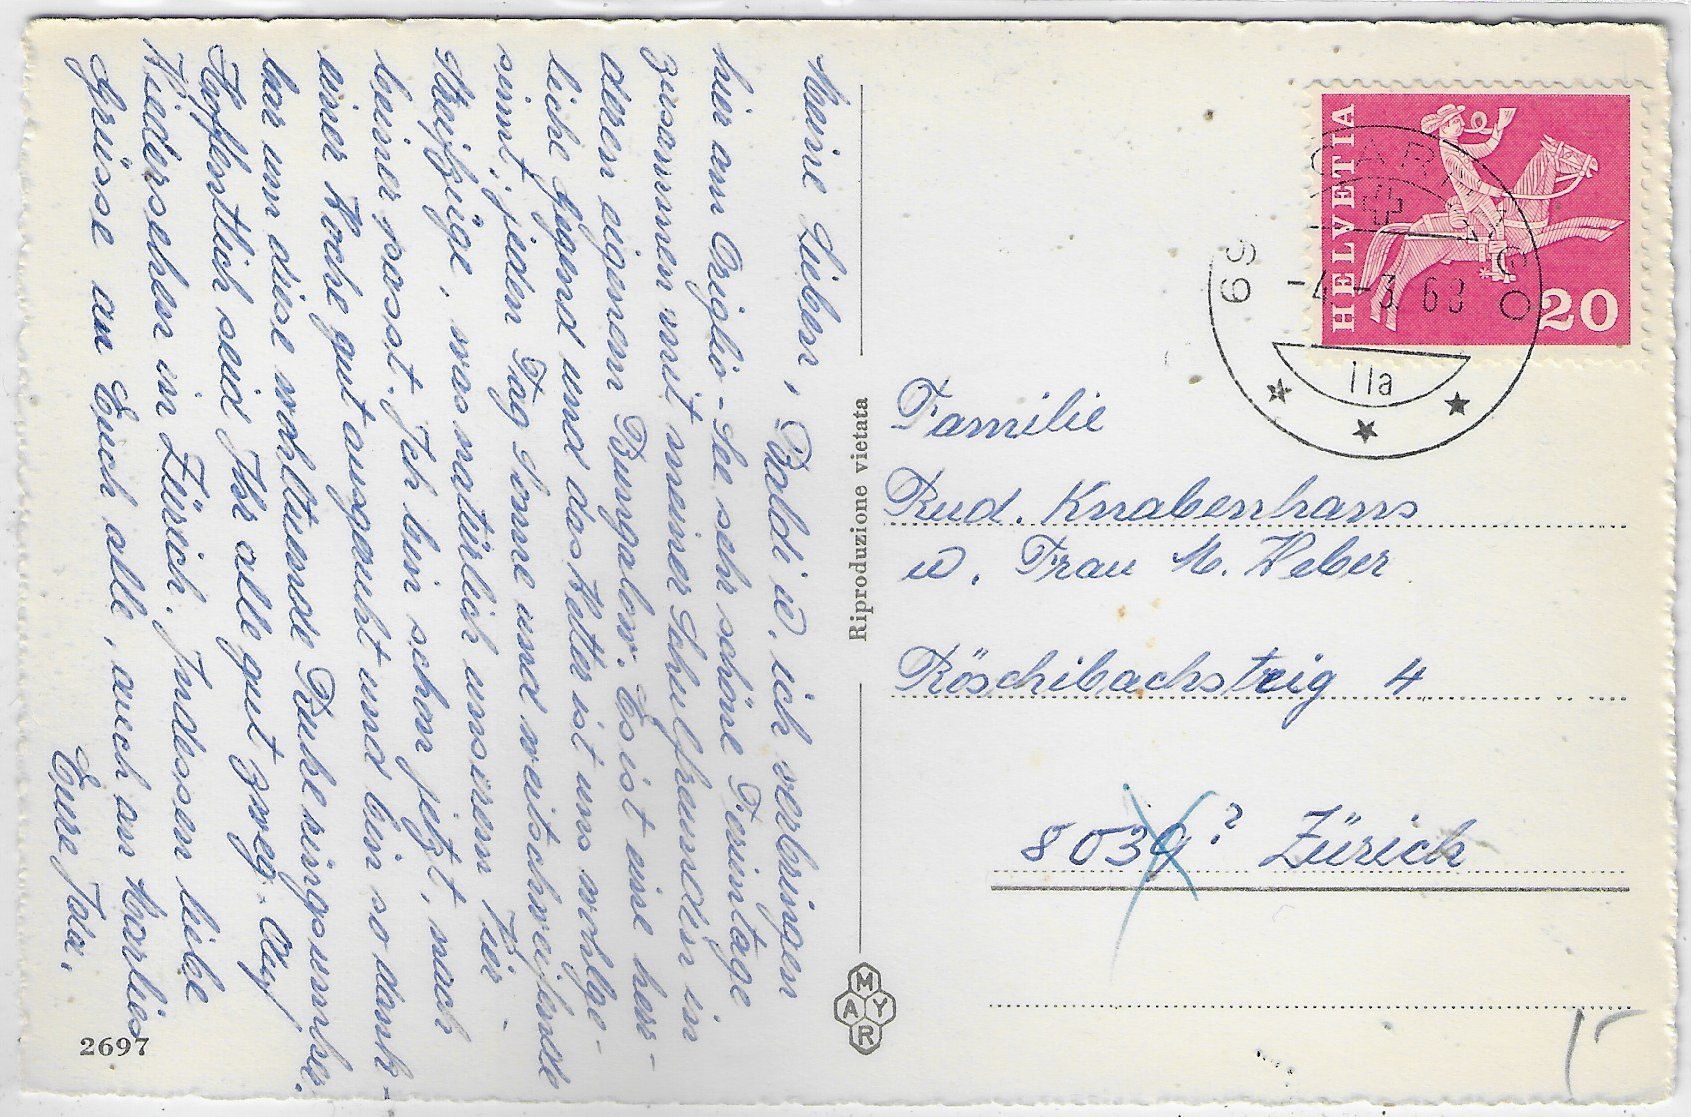 Meine Lieben, Baldi u. ich verbringen
hier am Origlio-See sehr schöne Ferientage
zusammen mit meiner Schulfreundin in
deren eigenem Bungalow. Es ist eine herr-
liche Gegend und das Wetter ist uns wohlge-
sinnt; jeden Tag Sonne und weitschweifende
Streifzüge, was natürlich unserem Vier-
beiner passt. Ich bin schon jetzt, nach
einer Woche gut ausgeruht und bin so dank-
bar um diese wohltuende Ruhe ringsumher.
Hoffentlich seid Ihr alle gut zweg. Auf
Wiedersehen in Zürich. Indessen liebe
Grüsse an Euch alle, auch an Marlies
Eure
2697
Riproduzione vietata
MAYR
HELVETIA
20
CARNAGO
69
-4.-3.68
11a
Familie
Rud. Knabenhans
u. Frau M. Weber
Röschibachsteig 4
8039? Zürich